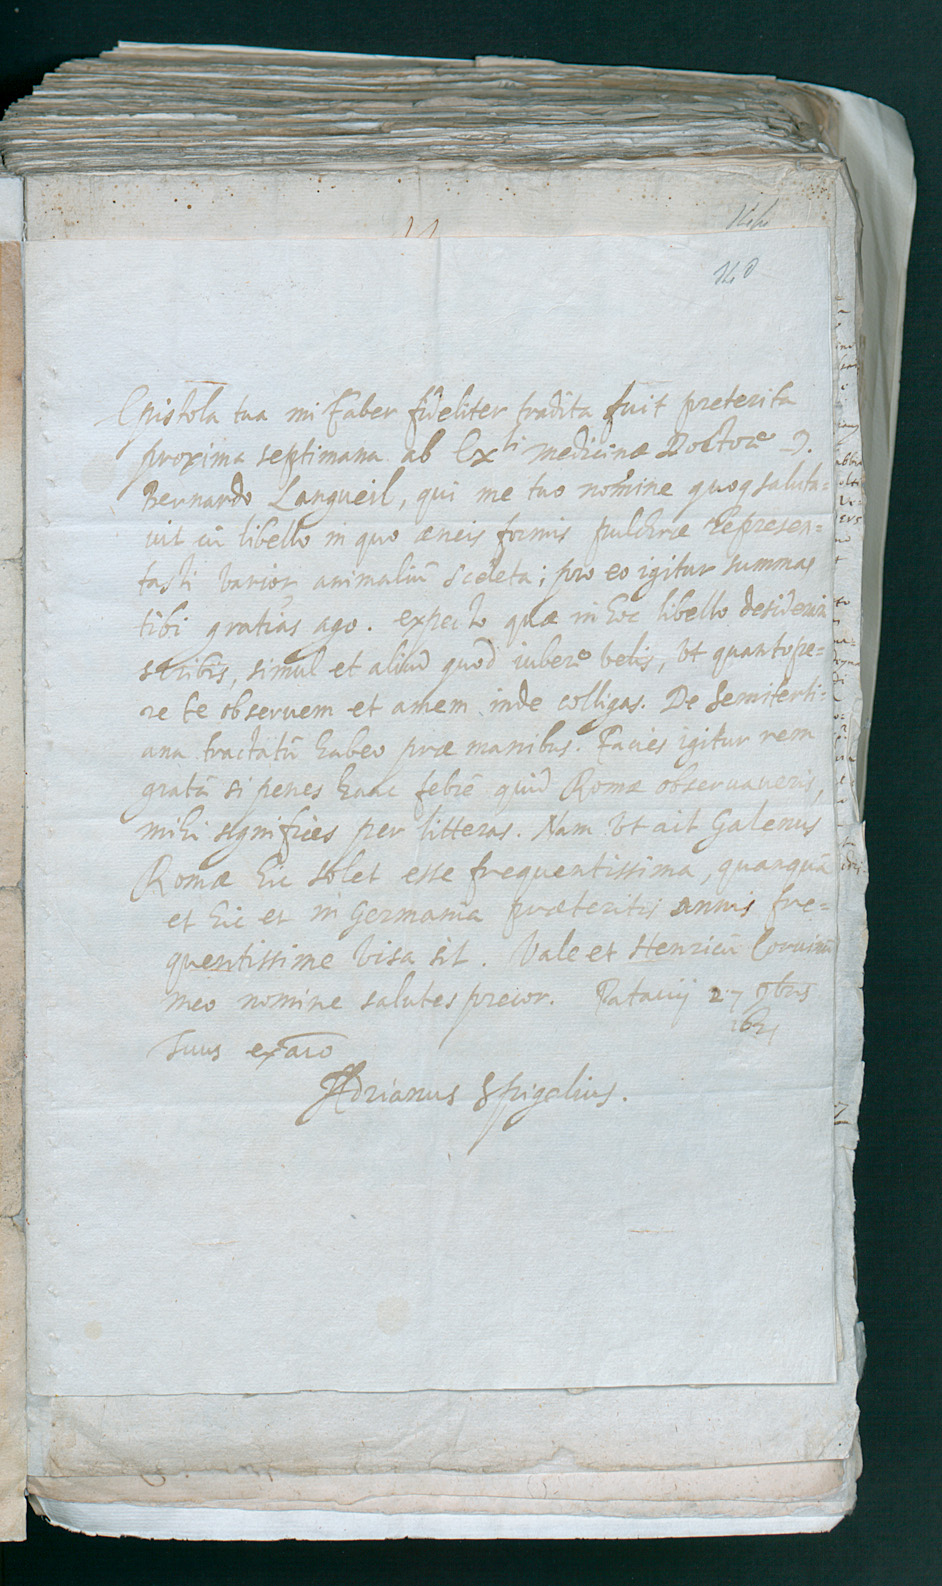 Epistola tua mi Faber fideliter tradita fuit preterita
proxima septimana ab Ex^ti medicinæ Doctore D.
Bernardo Langueil, qui me tuo nomine quoq saluta=
uit cū libello in quo æneis formis pulchræ represen=
tasti varior animaliū sceleta; pro eo igitur summas
tibi gratias ago. expecto quæ in hoc libello
scribis, simul et aliud quod iubere velis, vt quantope=
re te obseruem et amem inde colligas. De Semiterti=
ana tractatū habeo præ manibus. Facies igitur rem
gratā si penes hanc febrē quid Romæ obseruaueris,
mihi significes per litteras. Nam vt ait Galenus
Romæ hic solet esse frequentissima, quanquā
et hic et in Germania præteritis annis fre=
quentissime visa sit. Vale et Henricū Coruinū
meo nomine salutes precor. Patauij 27 9bris
1621
Tuus ex aīo
Adrianus Spigelius.